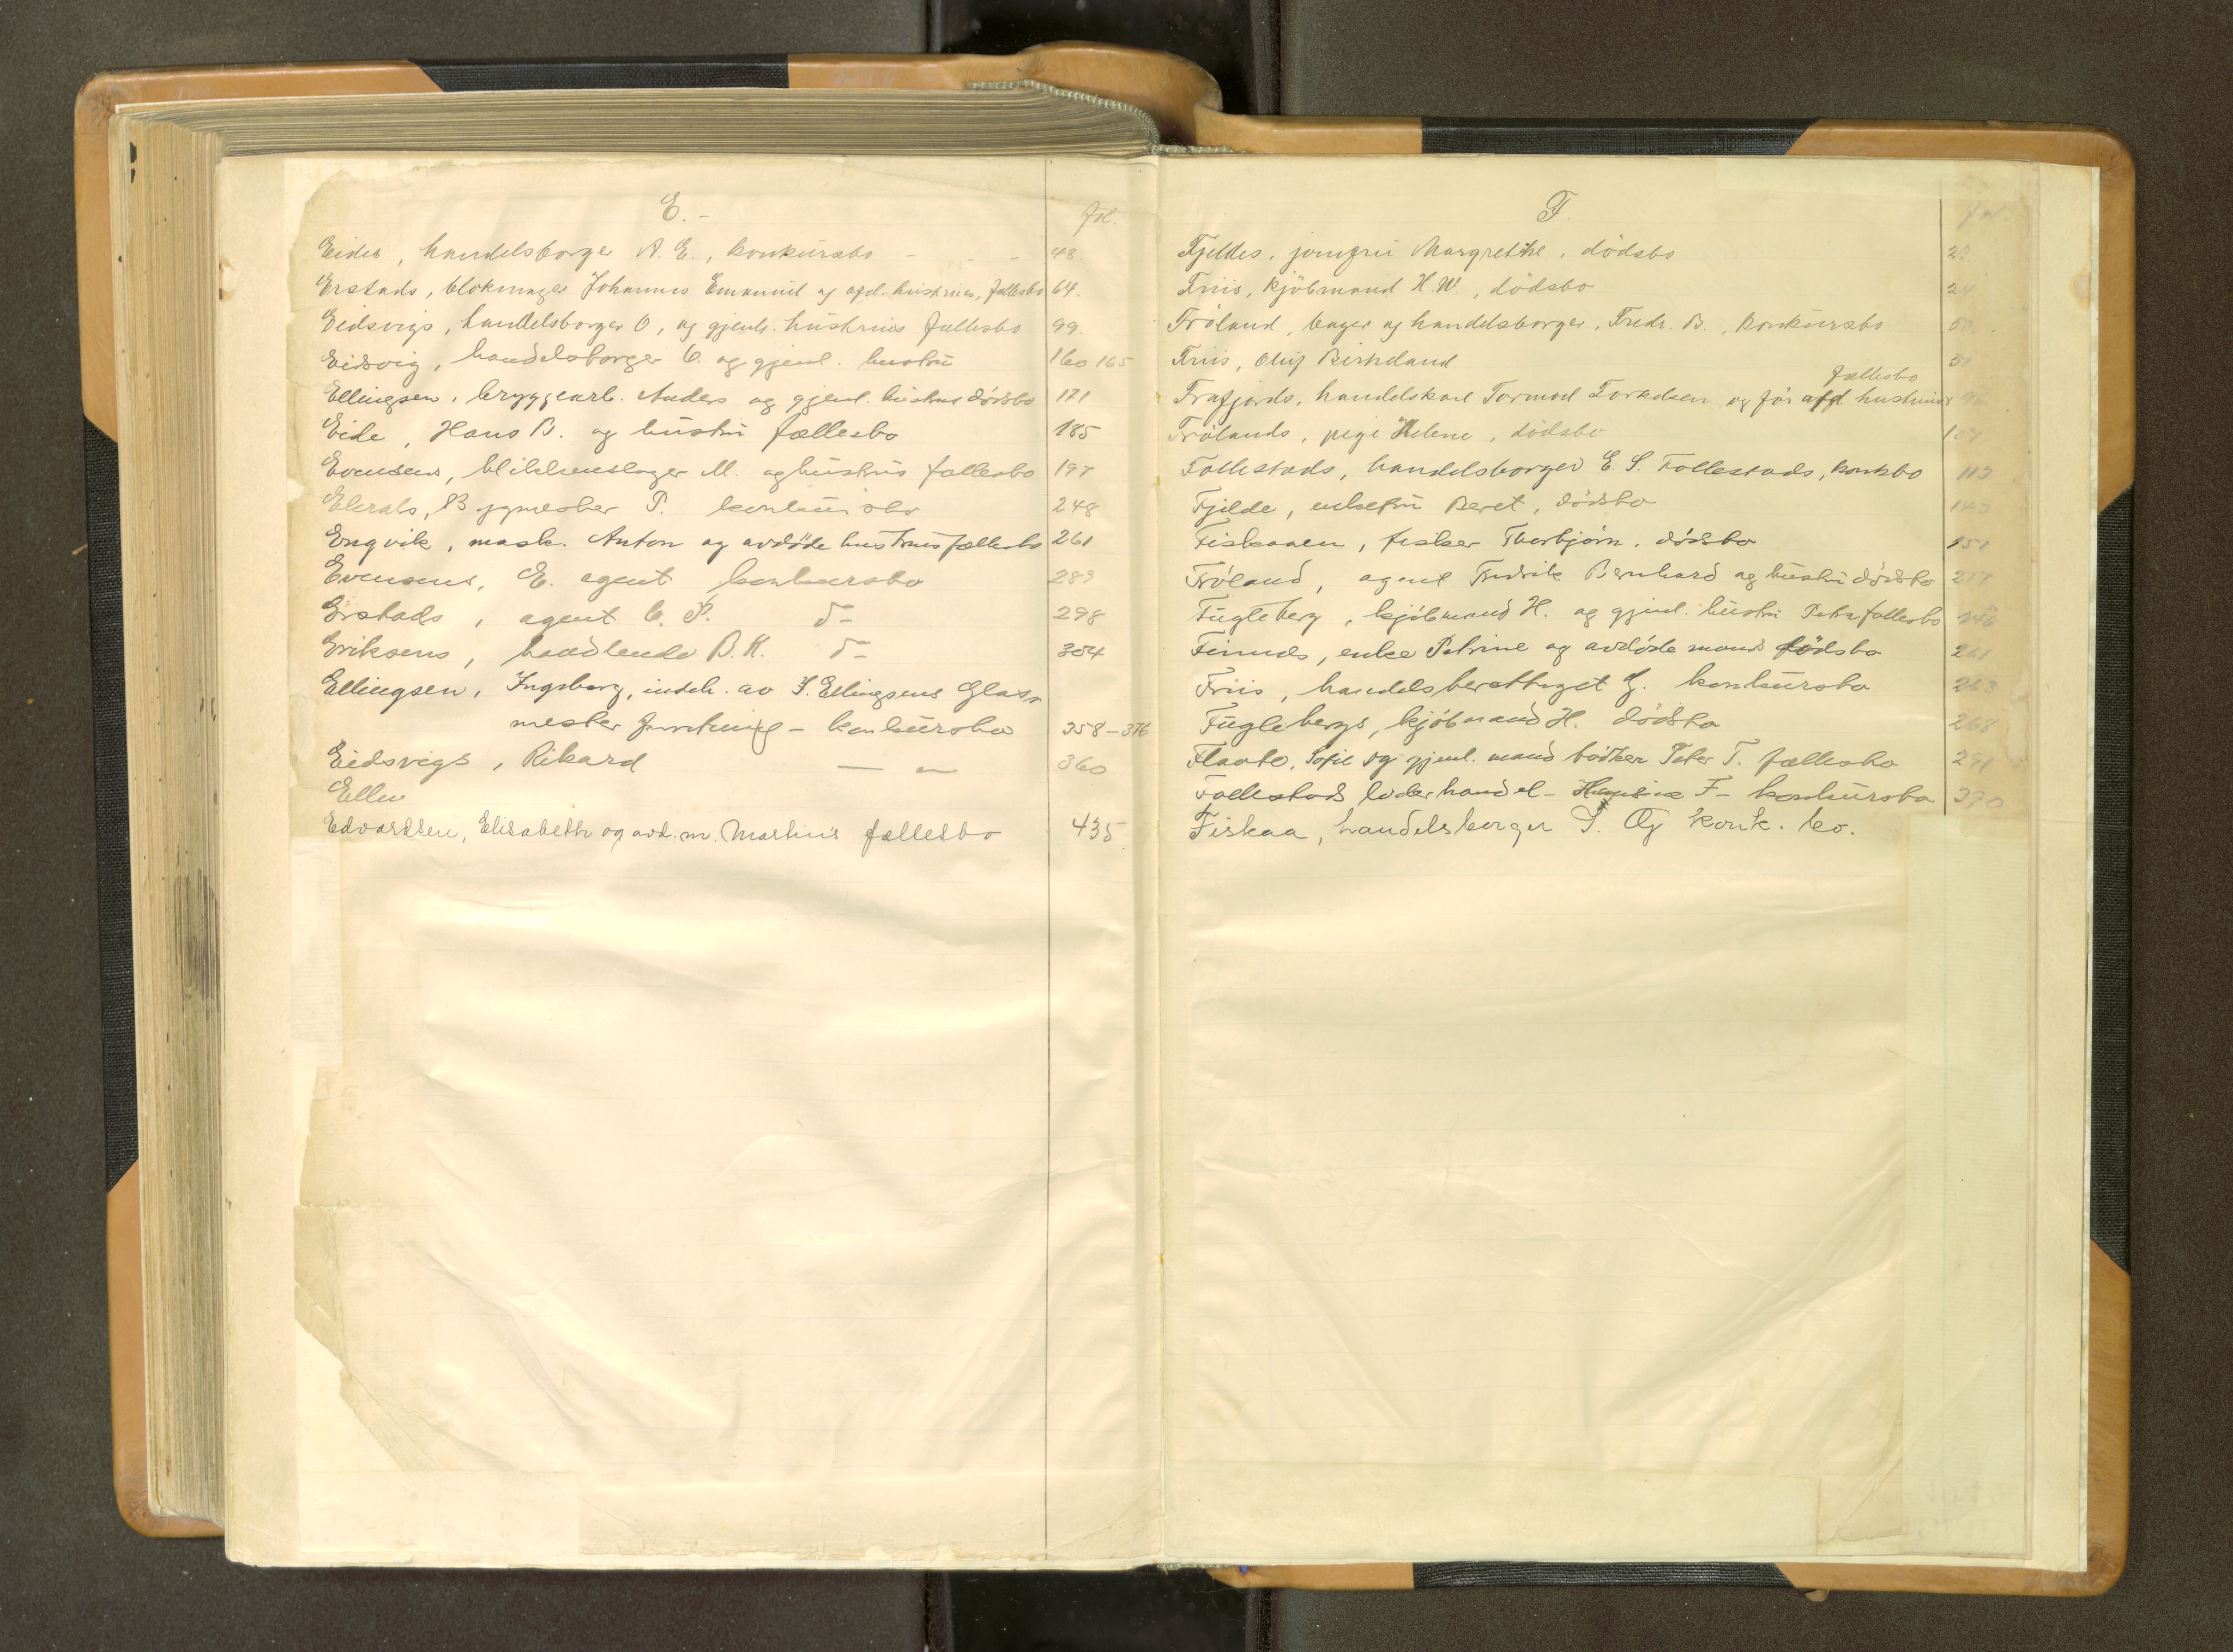 E. -
fol.
Eides, handelsborger A. E., konkursbo - - - 48.
Erstads, blokmager Johannes Emanuel og afd. hustrues, fællesbo 64.
Eidsvigs, handelsborger O, og gjenl. hustrues fællesbo 99.
Eidsvig, handelsborger O. og gjenl. hustru 160 165
Ellingsen, bryggearb. Anders og gjenl. hustrus dödsbo 171
Eide, Hans B. og hustru fællesbo 185
Evensens, blikkenslager M. og hustrus fællesbo 197
P. konkursbo 248
Engvik, mask. Anton og avdöde hustrus fællesbo 261
Evensens, E. agent konkursbo 289
Erstads, agent C. P. d- 298
Eriksens, handlende B. K. d- 304
Ellingsen, Ingeborg, indeh. av I. Ellingsens Glas-
mester forretning - konkursbo 358-376
Eidsvigs, Rikard — " — 360
Ellen
Edvardsen, Elisabeth og avd. m. Martinus fællesbo 435
F.
fol.
Fjeldes, jomfru Margrethe, dödsbo 23
Friis, kjöbmand H. W., dödsbo 24
Fröland, bager og handelsborger, Fredr. B., konkursbo 50.
Friis, Oluf Birkeland 51
fællesbo
Frafjords, handelskarl Tormod Torkelsen og för afd hustrues 96
Frölands, pige Helene, dödsbo 104
Follestads, handelsborger E. S. Follestads, konkbo 113
Fjelde, enkefru Beret, dödsbo 143
Fiskaaen, fisker Thorbjörn, dödsbo 151
Fröland, agent Fredrik Bernhard og hustru dödsbo 217
Fugleberg, kjöbmand H. og gjenl. hustru Petra fællesbo 246
enke Petrine og avdöde mands dödsbo 261
Friis, handelsberettiget G. konkursbo 263
Fuglebergs, kjöbmand H. dödsbo 268
Sofie og gjenl. mand bödker Peter T. fællesbo 291
Follestads læderhandel - F - konkursbo 390
Fiskaa, handelsborger P. Og konk. bo.